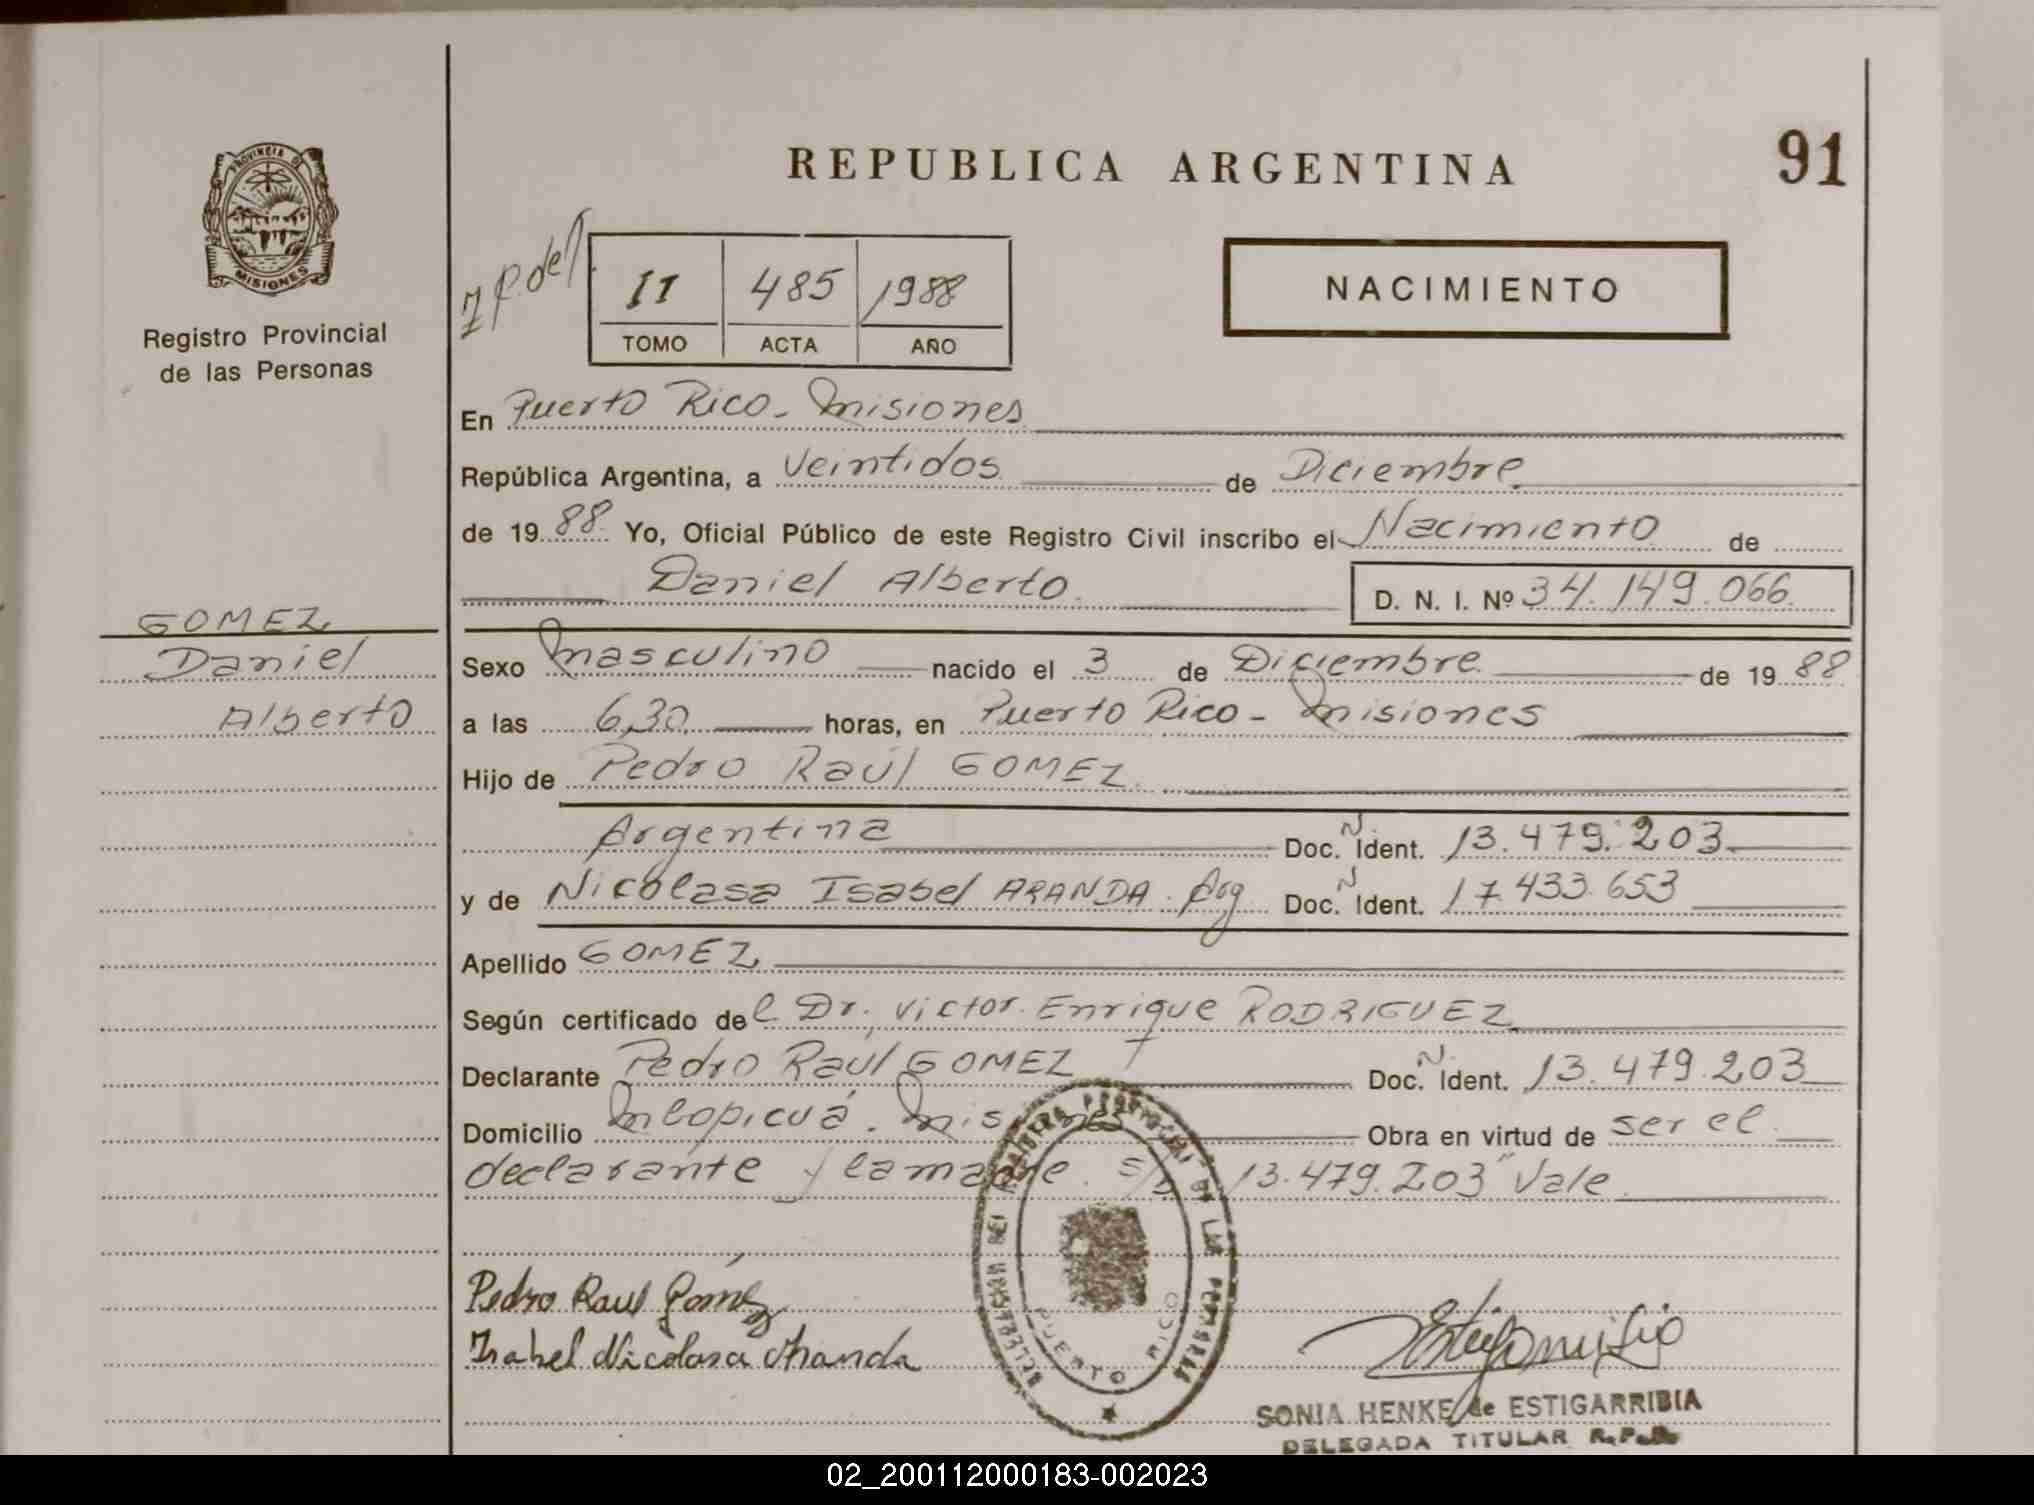 REPUBLICA ARGENTINA
91
PROVINCIA DE
MISIONES
Registro Provincial
de las Personas
II 485 1988
TOMO ACTA AÑO
NACIMIENTO
En Puerto Rico - Misiones
República Argentina, a Veintidos de Diciembre
de 19 88 Yo, Oficial Público de este Registro Civil inscribo el Nacimiento de
Daniel Alberto D. N. I. Nº 34.149.066
GOMEZ
Daniel
Alberto
Sexo Masculino nacido el 3 de Diciembre de 19 88
a las 6,30 horas, en Puerto Rico - Misiones
Hijo de Pedro Raúl GOMEZ
Argentina Doc. Ñ Ident. 13.479.203
y de Nicolasa Isabel ARANDA. Arg Doc. Ñ Ident. 17.433.653
Apellido GOMEZ
Según certificado del Dr. Victor Enrique RODRIGUEZ
Declarante Pedro Raúl GOMEZ Doc. Ñ Ident. 13.479.203
Domicilio Mbopicuá. Misiones Obra en virtud de ser el
declarante y la madre. 13.479.203" Vale
Pedro Raul Goméz
Isabel Nicolasa Aranda
DELEGACION DEL REGISTRO PROVINCIAL DE LAS PERSONAS
PUERTO RICO
SONIA HENKE de ESTIGARRIBIA
DELEGADA TITULAR
02_200112000183-002023